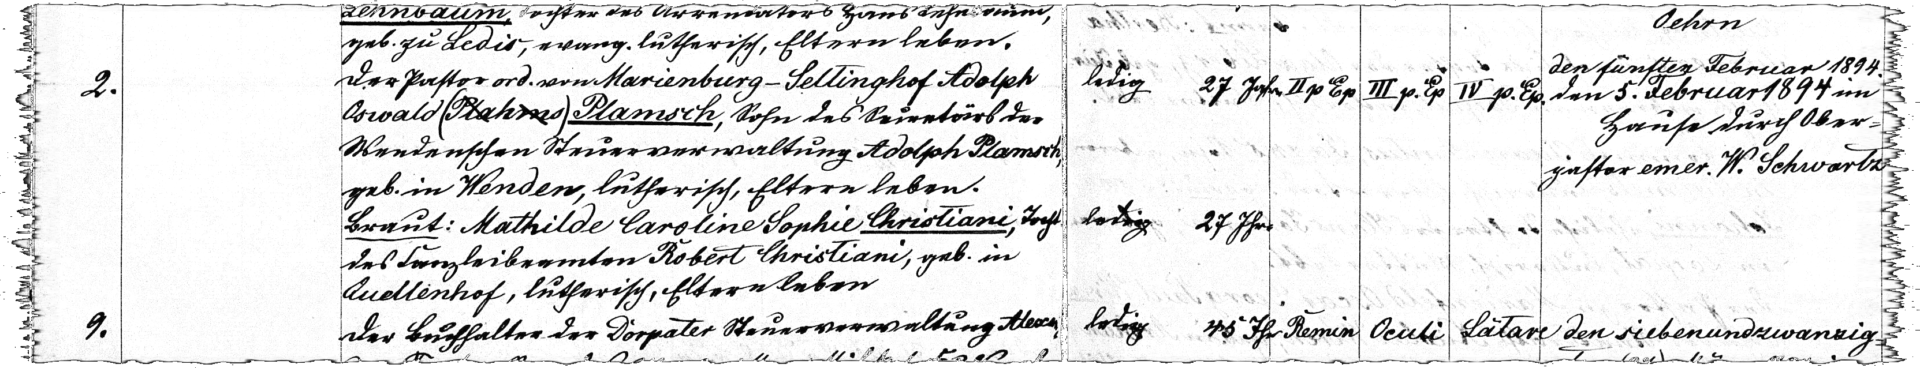 Lehnbaum, Tochter des Arrendators Hans Lehnbaum,
geb. zu Ledis, evang. lutherisch, Eltern leben.
Oehrn
2.
Der Pastor ord. von Marienburg-Seltinghof Adolph
Oswald (Plahms) Plamsch, Sohn des Secretärs der
Wendenschen Steuerverwaltung Adolph Plamsch,
geb. in Wenden, lutherisch, Eltern leben.
ledig 27 Jahr II p Ep III p. Ep IV p. Ep.
den fünften Februar 1894.
den 5. Februar 1894 im
Hause durch Ober-
pastor emer. W. Schwartz
Braut: Mathilde Caroline Sophie Christiani, Tocht.
des Canzleibeamten Robert Christiani, geb. in
Quellenhof, lutherisch, Eltern leben
ledig 27 Jhr.
9.
Der Buchhalter der Dorpater Steuerverwaltung Alexan
ledig 45 Jhr Remin Oculi Lätare den siebenundzwanzig-